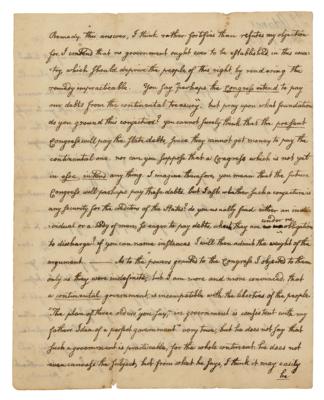 Remedy this answer, I think rather fortifies than refutes my objection
for I contend that no government ought ever to be established in this coun-
try, which should deprive the people of this right by rendering the
remedy impracticable. You say "perhaps the Congress intend to pay
our debts from the continental treasury". but pray upon what foundation
do you ground this conjecture? you cannot surely think that the present
Congress will pay the State debts, since they cannot get money to pay the
continental one. nor can you suppose that a Congress which is not yet
in esse, intend any thing. I imagine therefore, you mean that the future
Congress will perhaps pay these debts. but I ask whether such a conjecture is
any security for the creditors of the States? do you usually find either an indi-
vidual or a body of men, so eager to pay debts, which they are under no obligation
to discharge? if you can name instances I will then admit the weight of the
argument. As to the powers granted to the Congress I objected to them
only as they were indefinite, but I am more and more convinced, that
a continental government is incompatible with the liberties of the people.
"The plan of three orders you say, in government is consistent with my
father's Idea of a perfect government" very true; but he does not say that
such a government is practicable, for the whole continent. he does not
even canvass the subject, but from what he says, I think it may easily
be